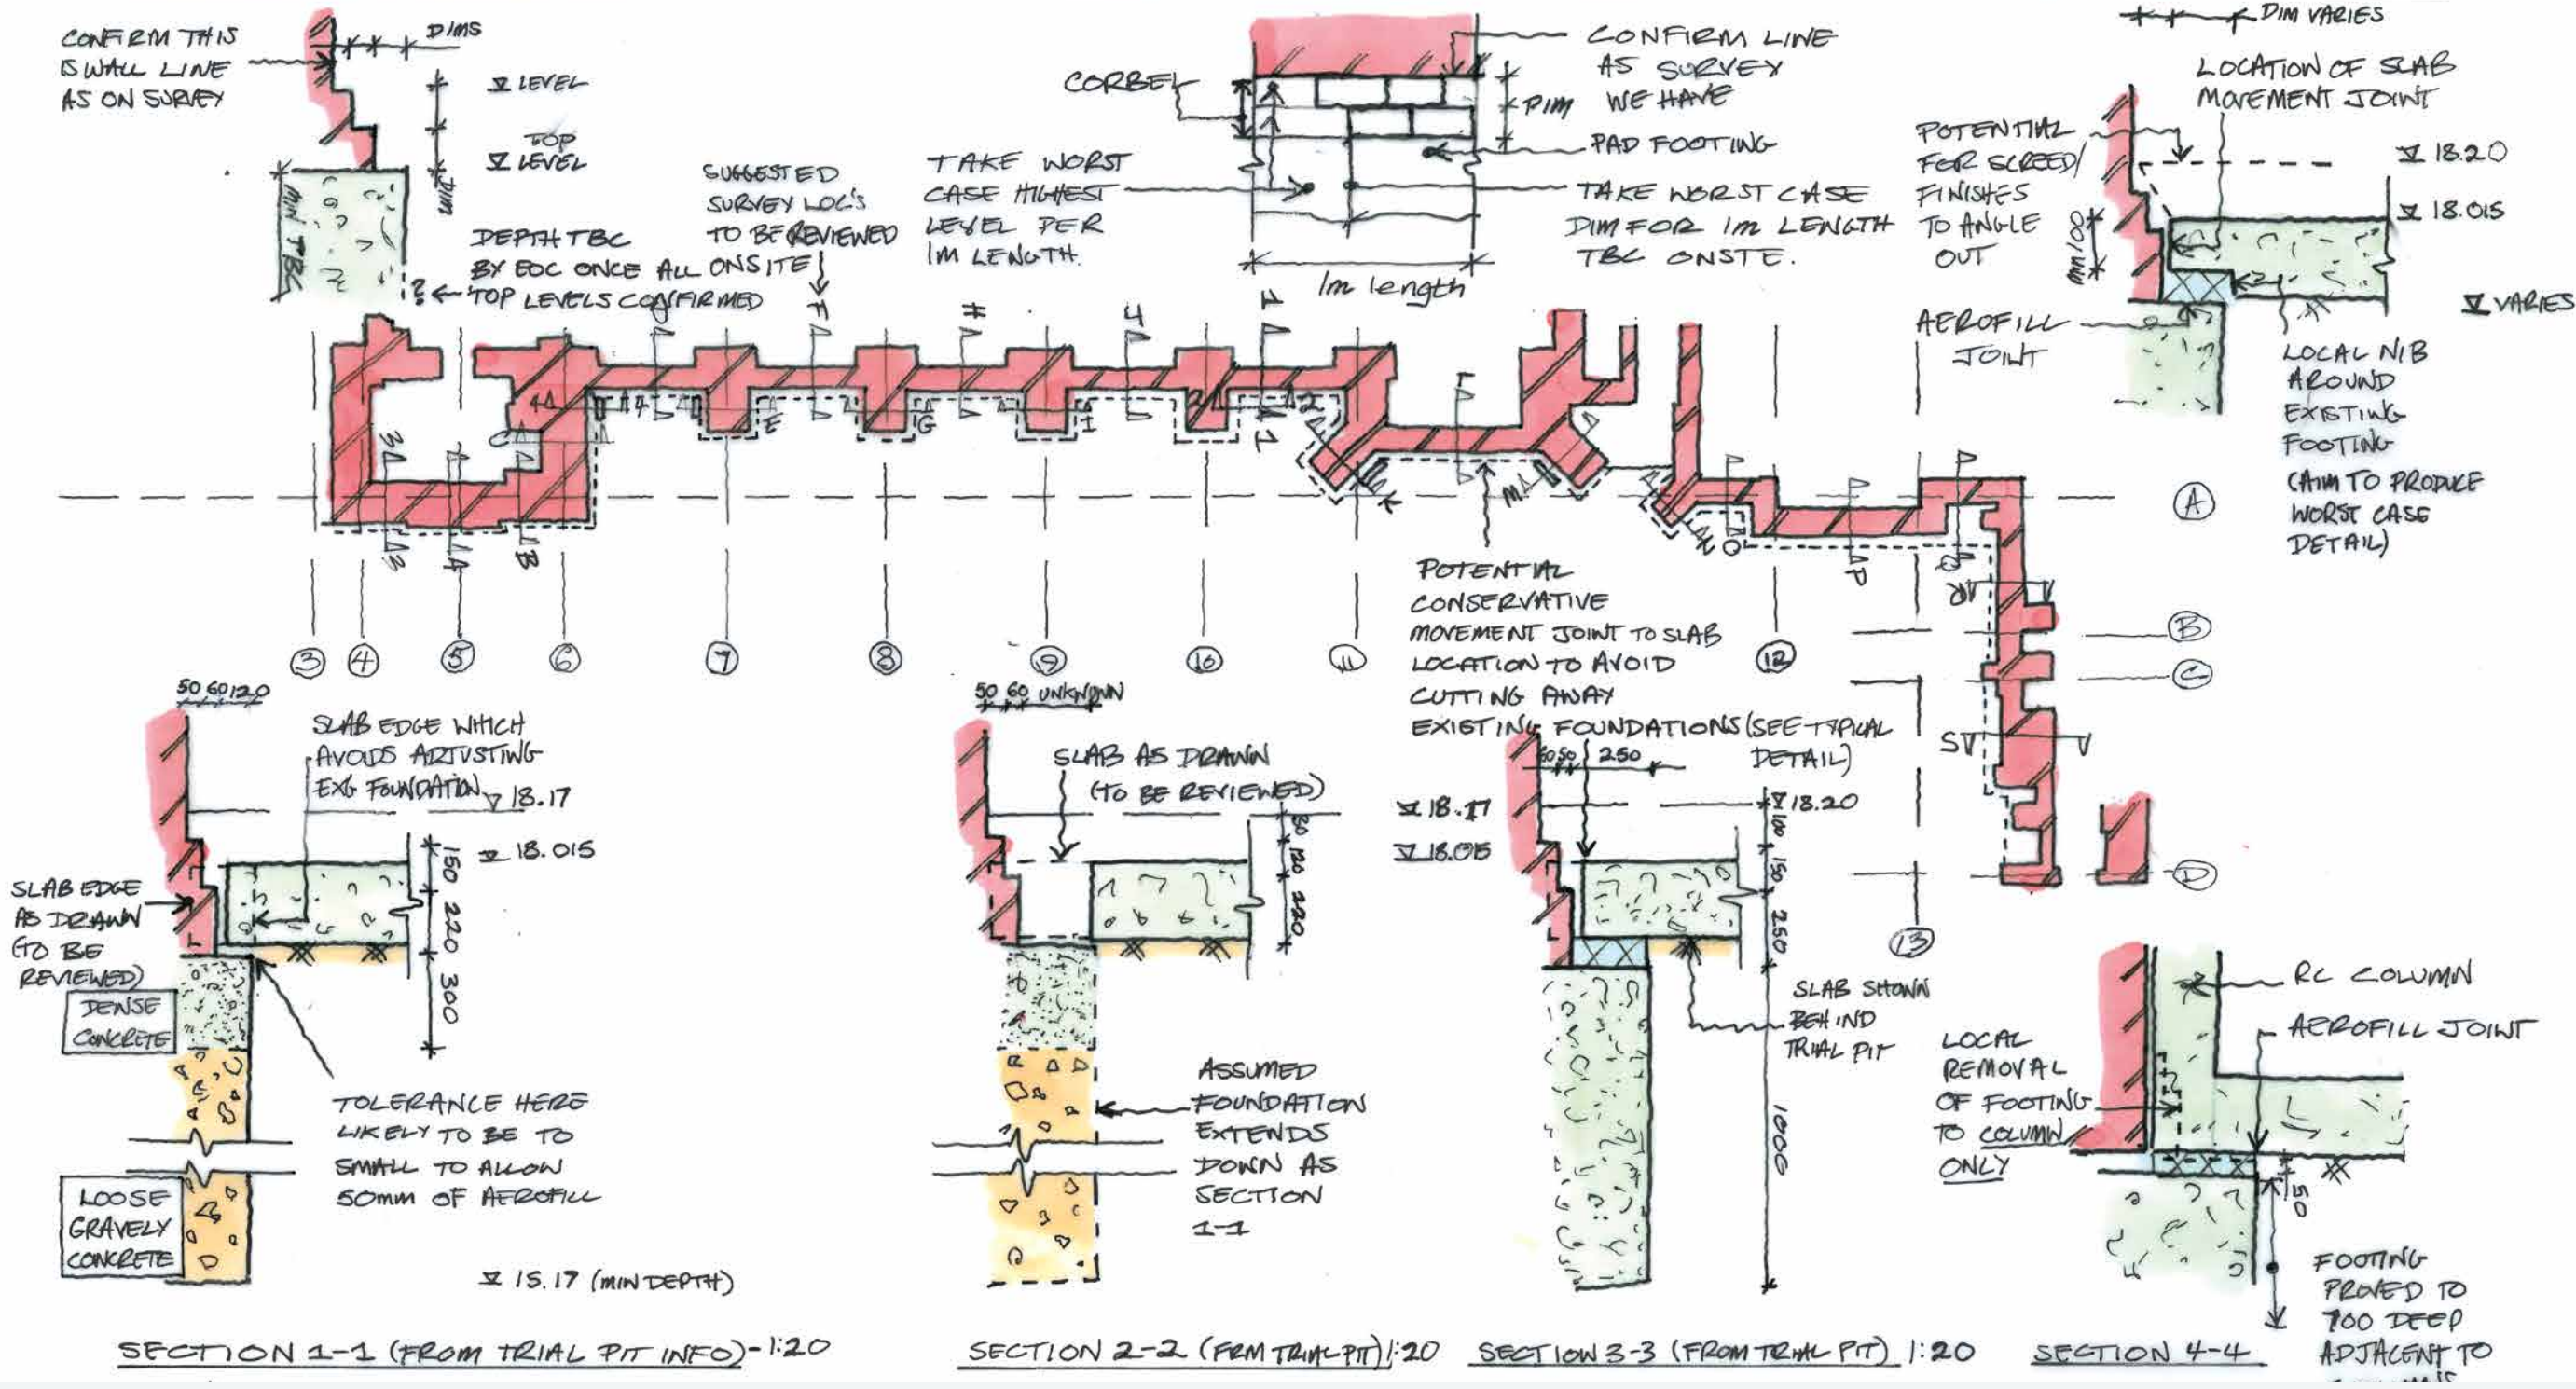 CONFIRM THIS
IS WALL LINE
AS ON SURVEY
DIMS
LEVEL
TOP
LEVEL
DIM
MIN TBC
DEPTH TBC
BY EOC ONCE ALL ONSITE
TOP LEVELS CONFIRMED
?
SUGGESTED
SURVEY LOC'S
TO BE REVIEWED
CORBEL
TAKE WORST
CASE HIGHEST
LEVEL PER
1M LENGTH.
1m length
CONFIRM LINE
AS SURVEY
WE HAVE
DIM
PAD FOOTING
TAKE WORST CASE
DIM FOR 1M LENGTH
TBC ONSTE.
DIM VARIES
LOCATION OF SLAB
MOVEMENT JOINT
POTENTIAL
FOR SCREED/
FINISHES
TO ANGLE
OUT
18.20
18.015
VARIES
AEROFILL
JOINT
LOCAL NIB
AROUND
EXISTING
FOOTING
(AIM TO PRODUCE
WORST CASE
DETAIL)
F
H
1
4
4
2
2
C
E
G
I
1
L
3
3
A
B
K
M
N
O
P
Q
R
S
A
B
C
D
3
4
5
6
7
8
9
10
11
12
13
POTENTIAL
CONSERVATIVE
MOVEMENT JOINT TO SLAB
LOCATION TO AVOID
CUTTING AWAY
EXISTING FOUNDATIONS (SEE TYPICAL
DETAIL)
50 60 120
SLAB EDGE WHICH
AVOIDS ADJUSTING
EXG FOUNDATION
18.17
18.015
150
220
300
SLAB EDGE
AS DRAWN
(TO BE
REVIEWED)
DENSE
CONCRETE
LOOSE
GRAVELY
CONCRETE
TOLERANCE HERE
LIKELY TO BE TO
SMALL TO ALLOW
50mm OF AEROFILL
15.17 (MIN DEPTH)
SECTION 1-1 (FROM TRIAL PIT INFO)-1:20
50 60 UNKNOWN
SLAB AS DRAWN
(TO BE REVIEWED)
120
220
ASSUMED
FOUNDATION
EXTENDS
DOWN AS
SECTION
1-1
SECTION 2-2 (FRM TRIAL PIT) 1:20
250
18.17
18.015
18.20
100
150
250
1000
SLAB SHOWN
BEHIND
TRIAL PIT
SECTION 3-3 (FROM TRIAL PIT) 1:20
RC COLUMN
AEROFILL JOINT
LOCAL
REMOVAL
OF FOOTING
TO COLUMN
ONLY
50
FOOTING
PROVED TO
700 DEEP
ADJACENT TO
SECTION 4-4